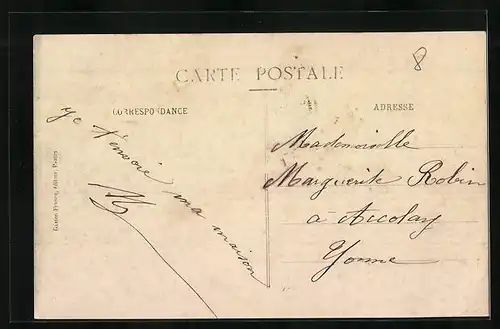 8
CARTE POSTALE
CORRESPONDANCE
ADRESSE
Je t'envoie ma maison
Mademoiselle
Marguerite Robin
à Accolay
Yonne